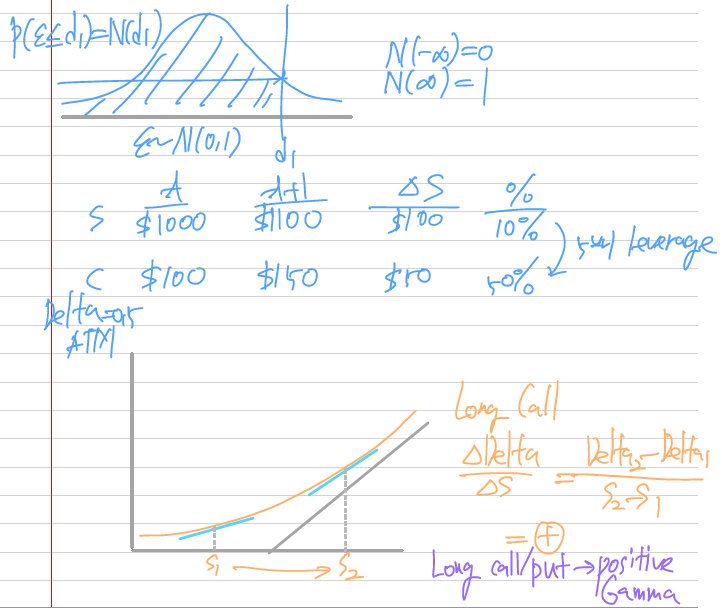 P(ε≤d₁)=N(d₁)
N(-∞)=0
N(∞)=1
ε~N(0,1)
d₁
A A+1 ΔS %
S $1000 $1100 $100 10%
C $100 $150 $50 50%
5x1 Leverage
Delta=0.5
ATM
Long Call
ΔDelta/ΔS = Delta₂-Delta₁/S₂-S₁
= ⊕
S₁ → S₂
Long call/put→positive
Gamma